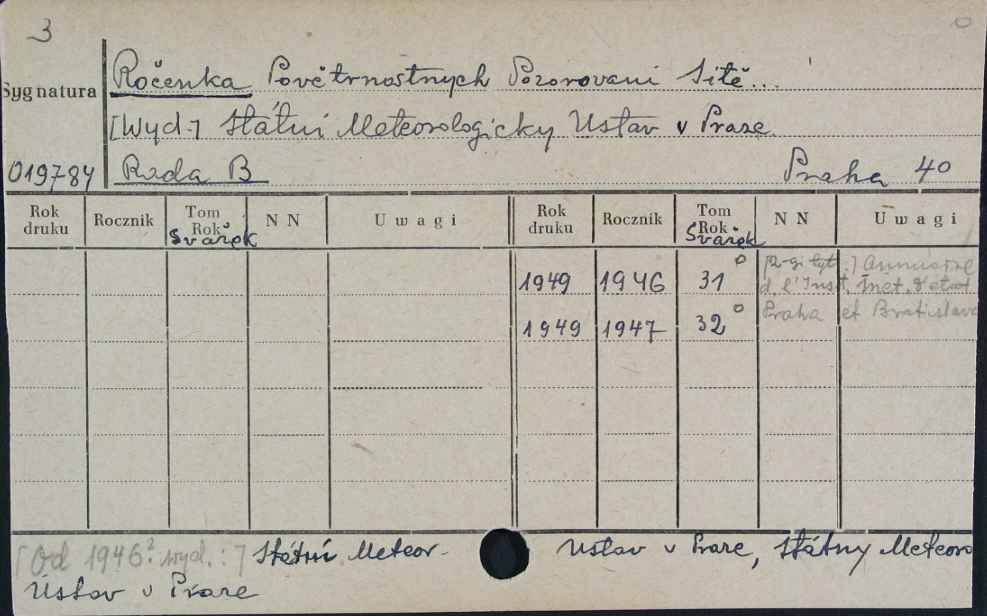 3
Ročenka Povětrnostnych Pozorovani Sítě...
Sygnatura
[Wyd.] Státni Meteorologicky Ustav v Praze
019784 Rada B Praha 40
Rok druku Rocznik Tom Rok Svazek NN Uwagi Rok druku Rocznik Tom Rok Svazek NN Uwagi
1949 1946 31 Annuaire
d. l'Inst. Mét. d'etat
1949 1947 32 Praha et Bratislava
[Od 1946? wyd.:] Státní Meteor. Ustav v Praze, Státny Meteoro
Ústav v Praze